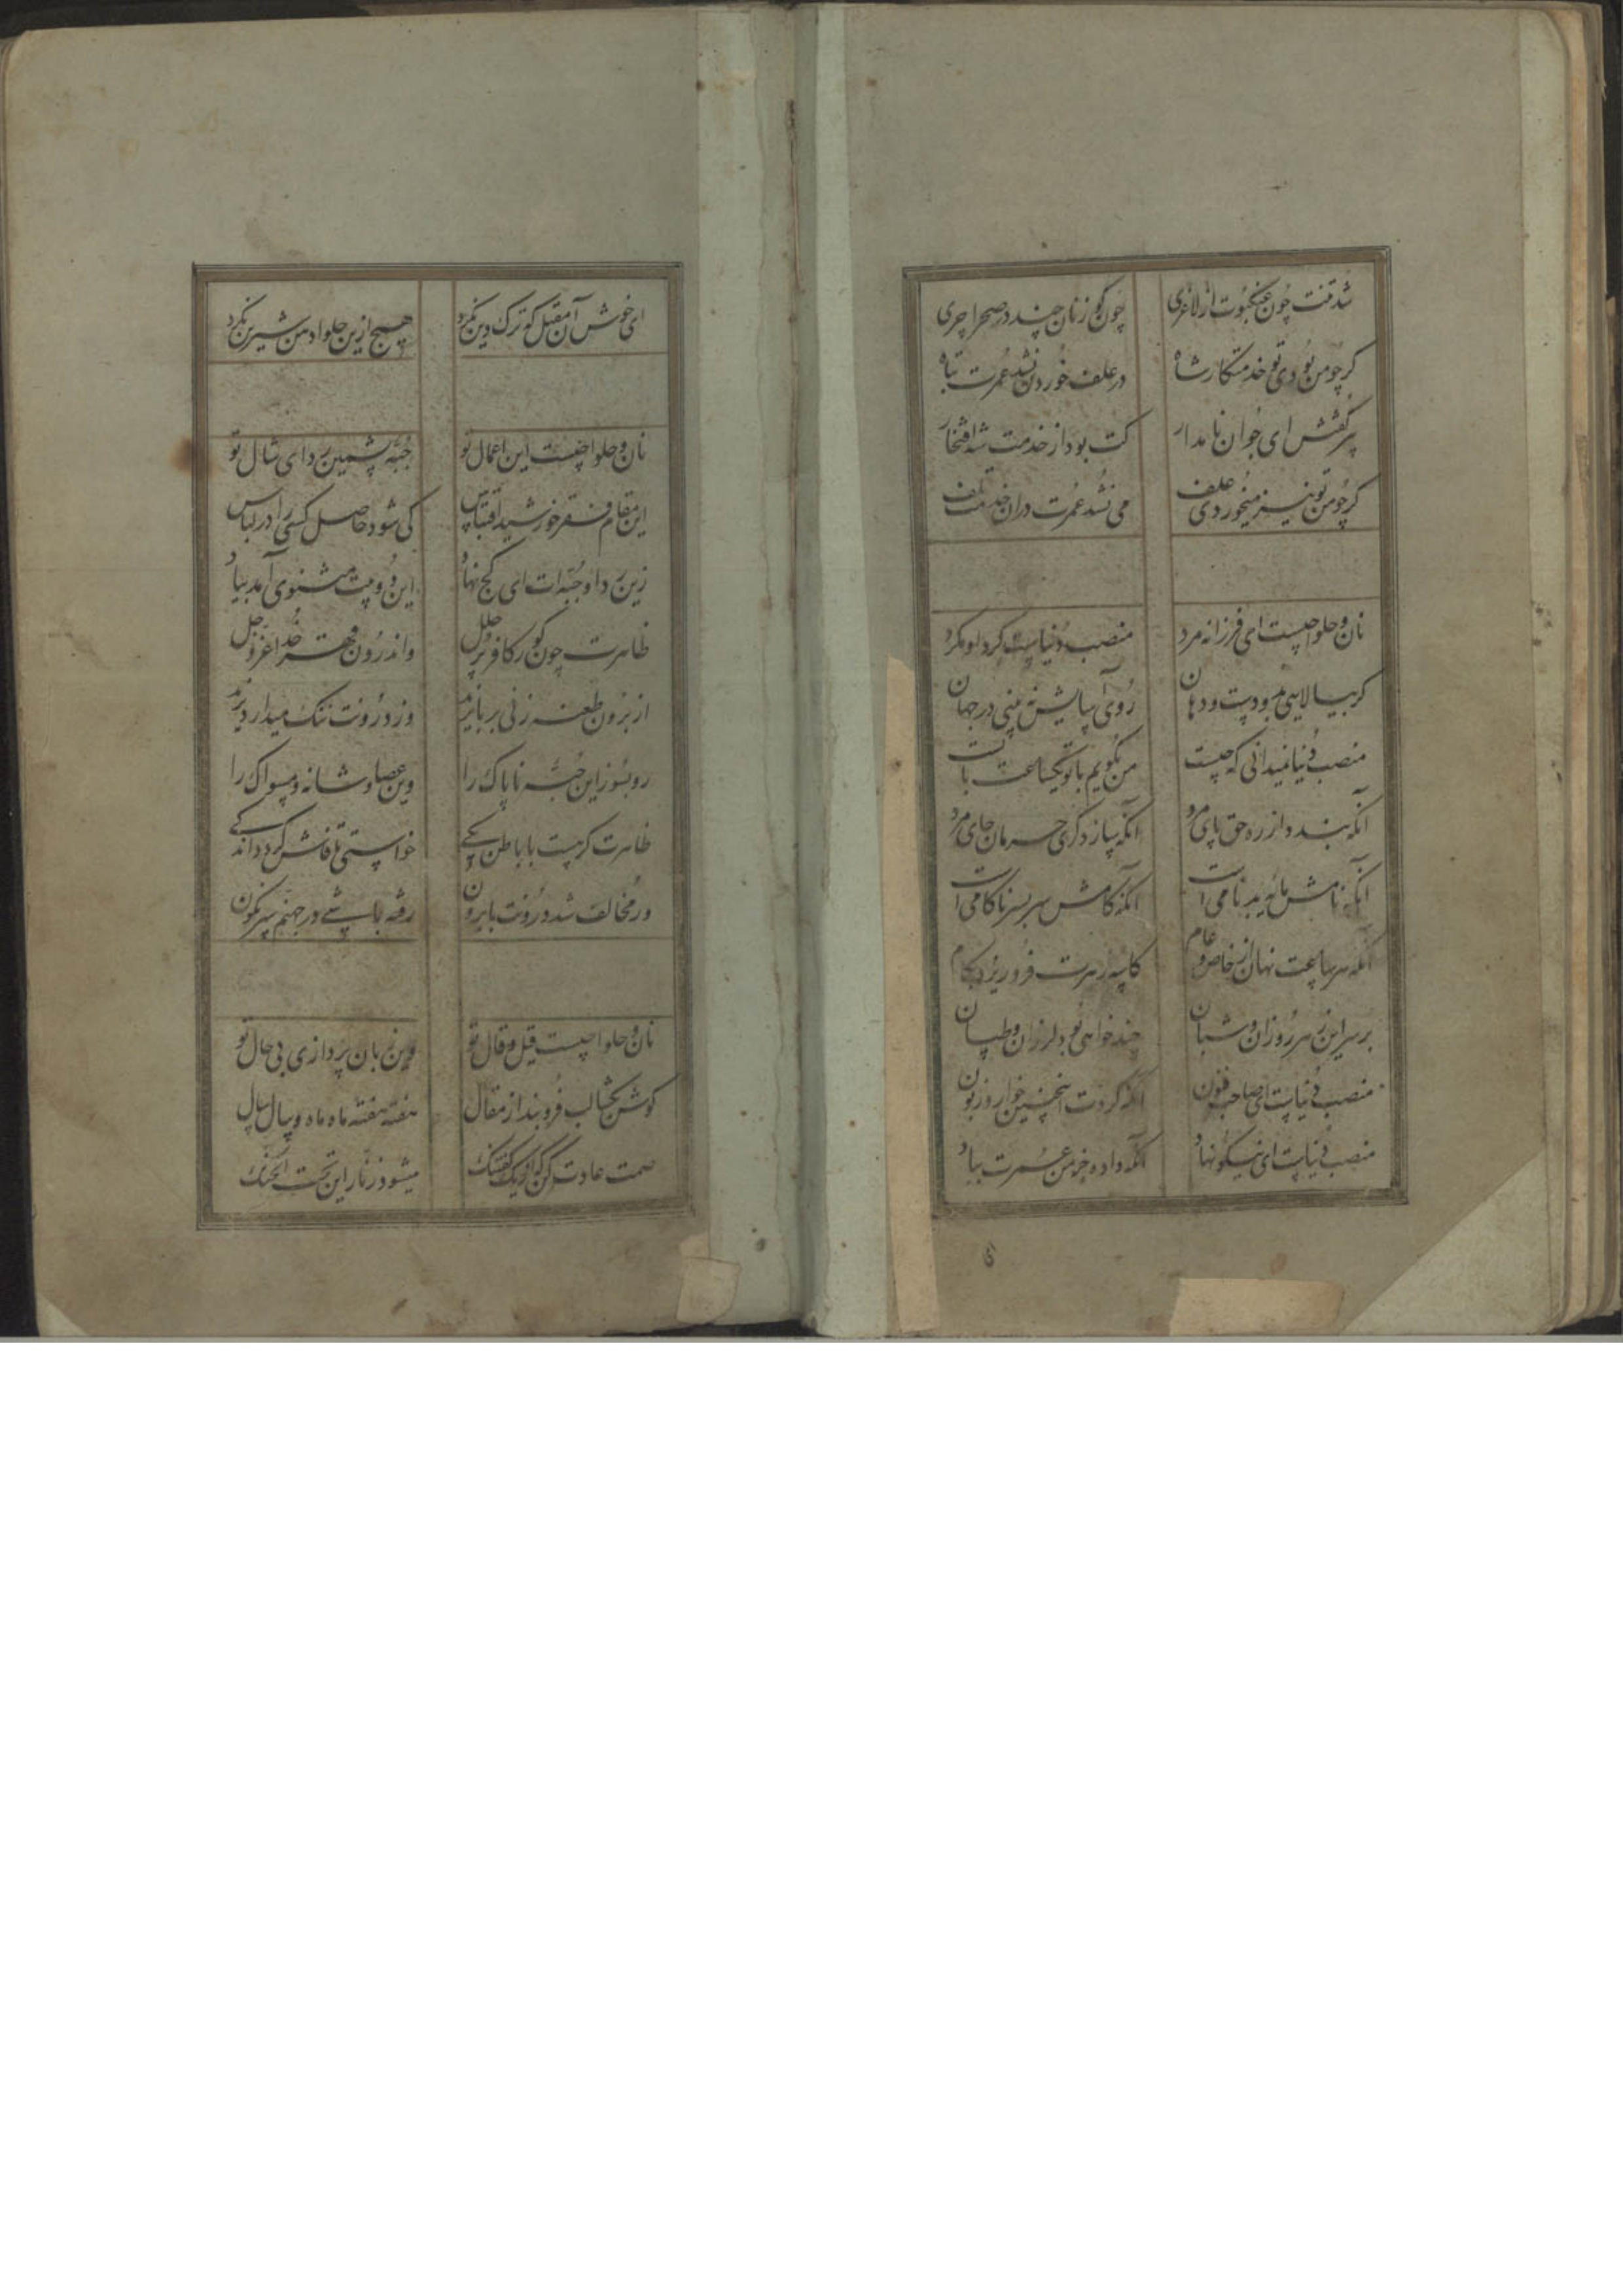 شد تنت چون عنکبوت از لاغری چون کوزنان چند در صحرا چری
کر چو من بودی تو خدمتکار شاه در علف خوردن نشد عمرت تباه
پیر کفتش ای جوان نامدار کت بود از خدمت شه افتخار
کر چو من تو نیز میخوردی علف می نشد عمرت دران خدمت تلف
نان و حلوا چیست ای فرزانه مرد منصب دنیاست کرد او مکرد
کر بیالایی بدو دست و دهان روی آسایش نه بینی در جهان
منصب دنیا نمیدانی که چیست من بکویم با تو یکساعت بایست
آنکه بندد از ره حق پای مرد آنکه سازد کوی حرمان جای مرد
آنکه نامش مایه بدنامی است آنکه کامش سربسر ناکامی است
آنکه هر ساعت نهان از خاص و عام کاسه زهرت فرو ریزد بکام
بر سر این زهر روزان و شبان چند خواهی بود لرزان و طپان
منصب دنیاست ای صاحب فنون آنکه کردت اینچنین خوار و زبون
منصب دنیاست ای نیکو نهاد آنکه داده خرمن عمرت بباد
ای خوش آن مقبل که ترک دین نکرد هیچ ازین حلوا دهن شیرین نکرد
نان و حلوا چیست این اعمال تو جبه پشمین ردای شال تو
این مقام فقر خورشید اقتباس کی شود حاصل کسی را در لباس
زین ردا و جبه ات ای کج نهاد این دو بیت مثنوی آمد بیاد
ظاهرت چون کور کافر پر حلل واندرون قهر خدا عز و جل
از برون طعنه زنی بر بایزید وز درونت ننک میدارد یزید
رو بسوز این جبه ناپاک را وین عصا و شانه و مسواک را
ظاهرت کر هست با باطن یکی
ور مخالف شد درونت با برون رفته باشی در جهنم سرنکون
نان و حلوا چیست قیل و قال تو وین زبان پردازی بی حال تو
کوش بکشا لب فرو بند از مقال هفته هفته ماه ماه و سال سال
صمت عادت کن که از یک کفتنک میشود زنار این تحت الحنک
ای